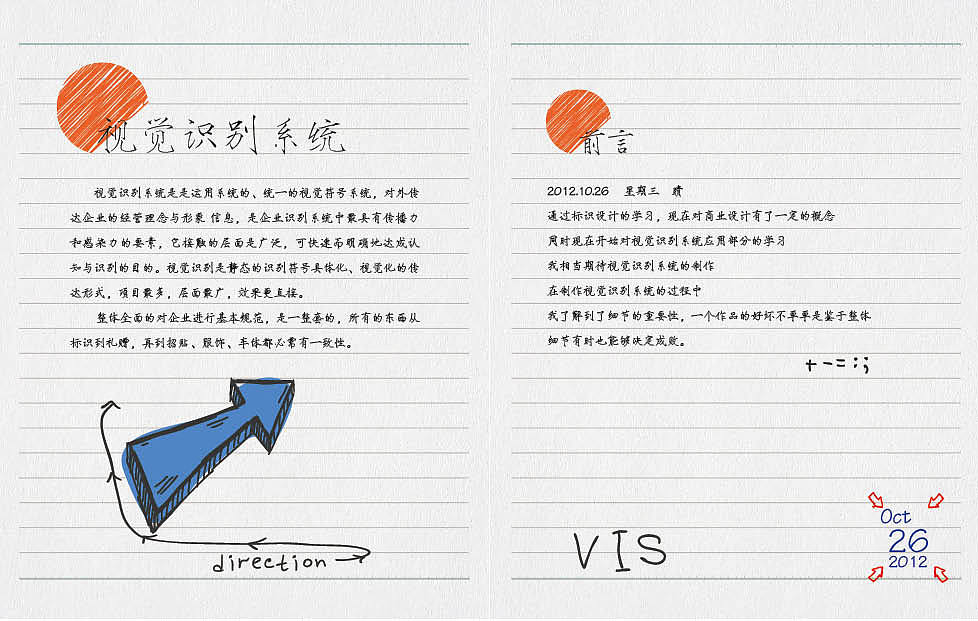 视觉识别系统
视觉识别系统是是运用系统的、统一的视觉符号系统，对外传
达企业的经管理念与形象 信息，是企业识别系统中最具有传播力
和感染力的要素，它接触的层面是广泛，可快速而明确地达成认
知与识别的目的。视觉识别是静态的识别符号具体化、视觉化的传
达形式，项目最多，层面最广，效果更直接。
整体全面的对企业进行基本规范，是一整套的，所有的东西从
标识到礼赠，再到招贴、服饰、车体都必需有一致性。
direction
前言
2012.10.26 星期三
通过标识设计的学习，现在对商业设计有了一定的概念
同时现在开始对视觉识别系统应用部分的学习
我相当期待视觉识别系统的制作
在制作视觉识别系统的过程中
我了解到了细节的重要性，一个作品的好坏不单单是鉴于整体
细节有时也能够决定成败。
+ - = : ;
VIS
Oct
26
2012